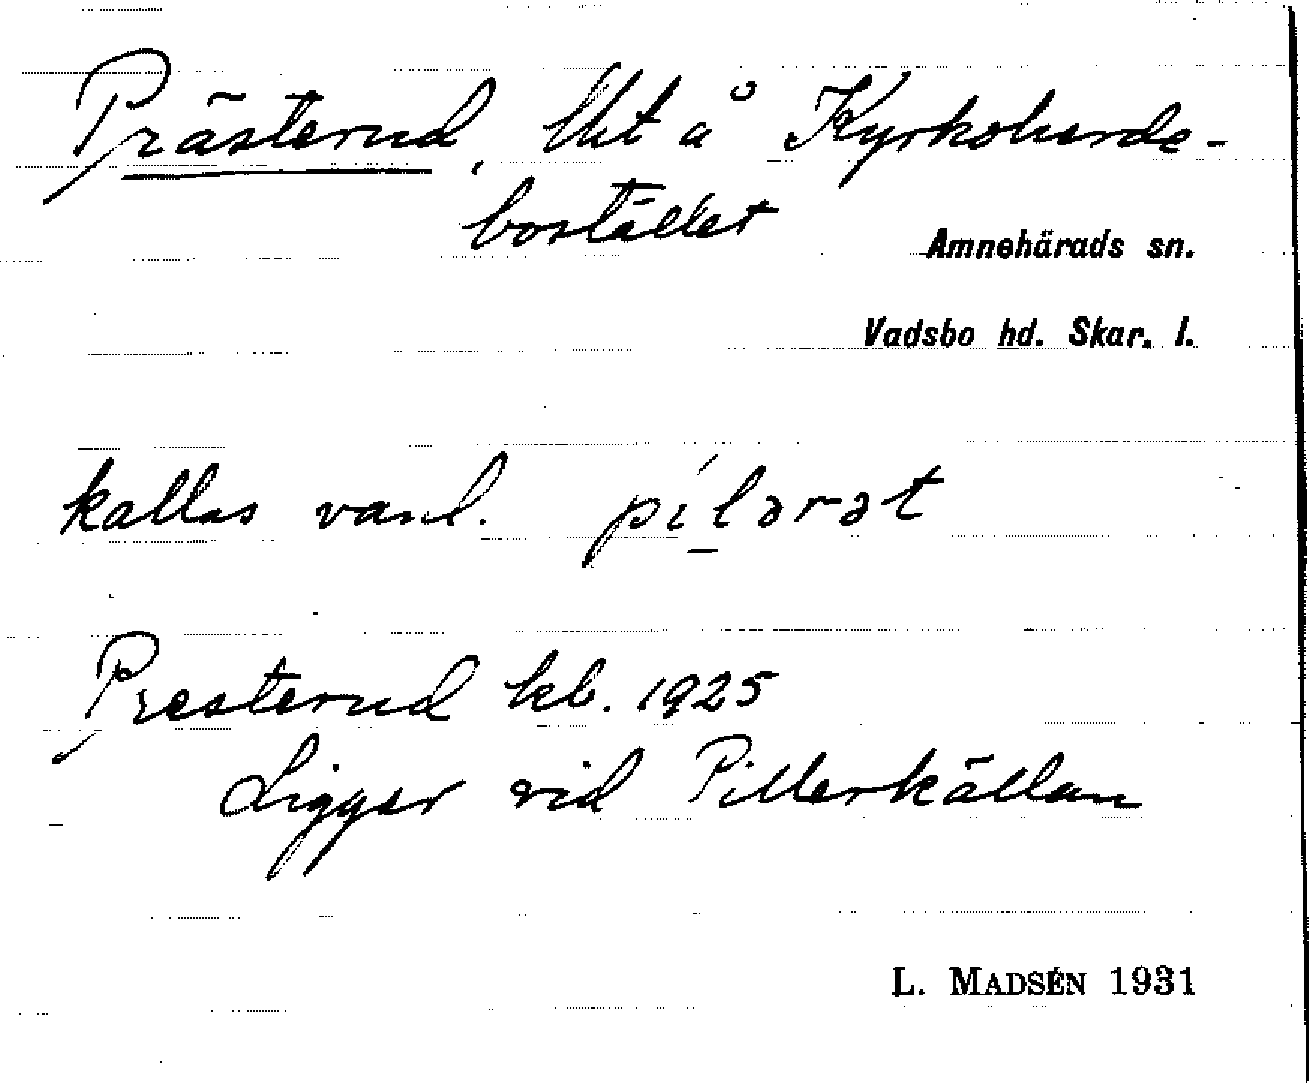 Prästerud, lht å Kyrkoherde-
bostället
Amnehärads sn.
Vadsbo hd. Skar. l.
kallas vanl. pílərət
Presterud kb. 1925
Ligger vid Pillerkällan
L. MADSÉN 1931